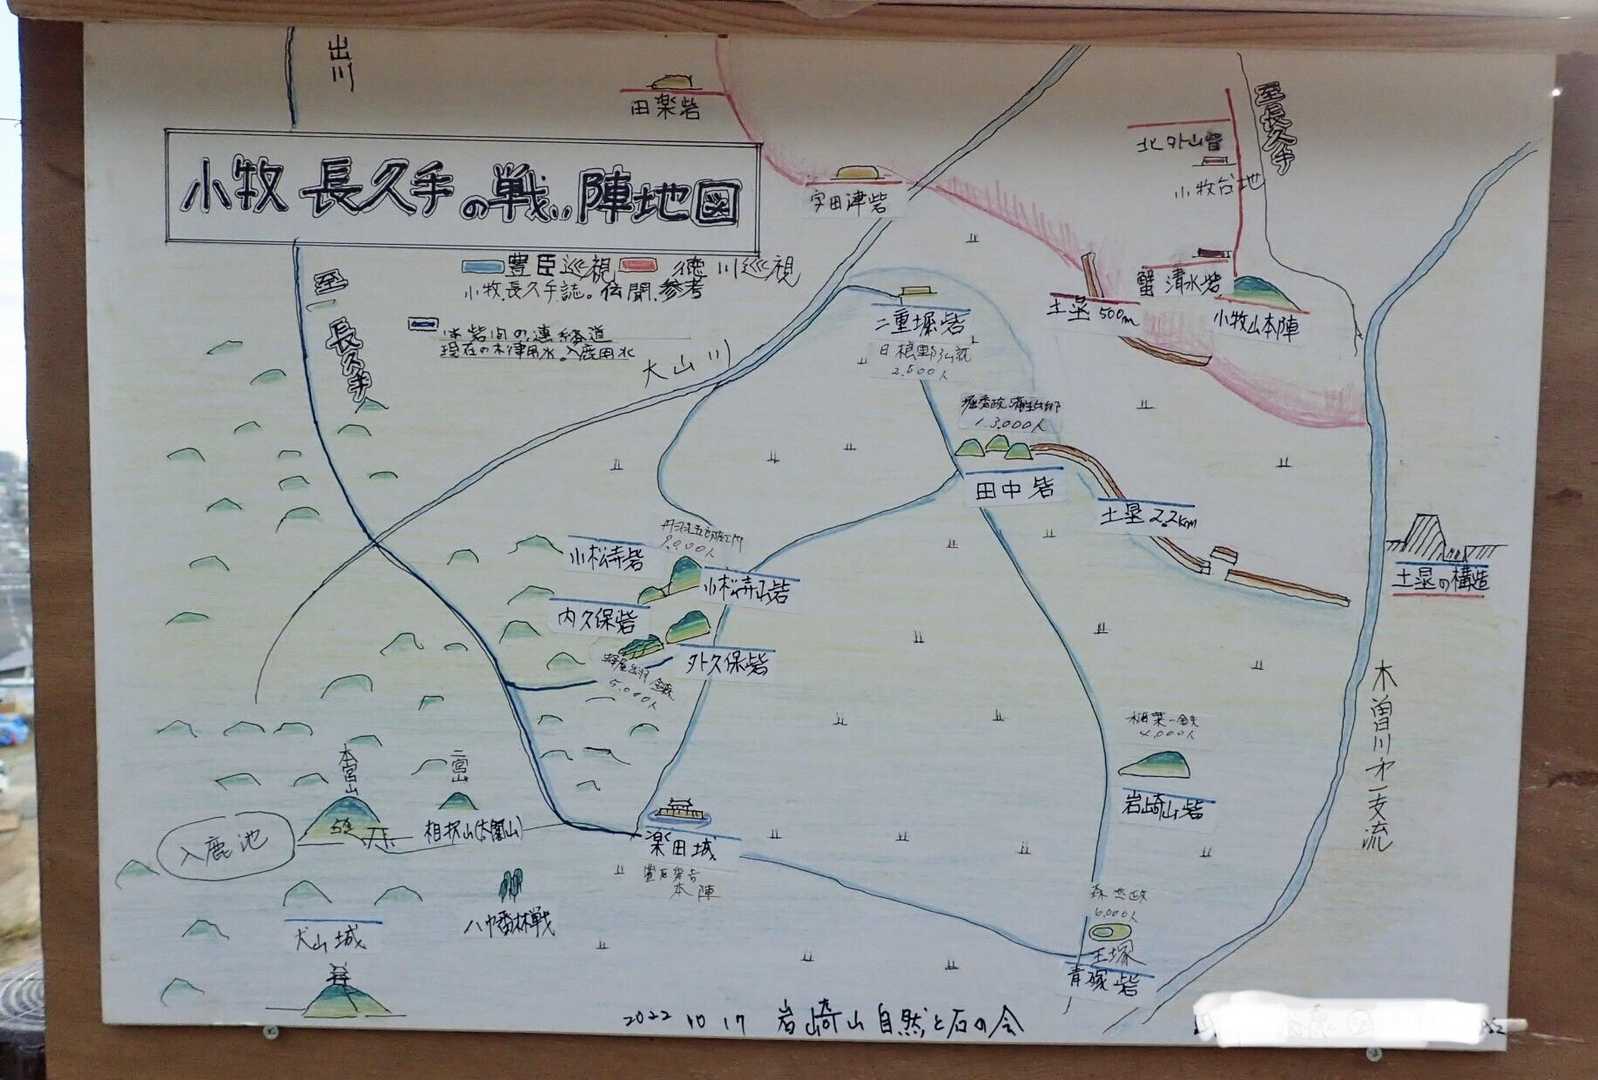 出川
田楽砦
宇田津砦
北外山砦
小牧台地
至長久手
小牧長久手の戦い陣地図
豊臣巡視 徳川巡視
小牧、長久手誌。伝聞、参考
砦間の連絡道
現在の木津用水。入鹿用水
至
長久手
大山川
二重堀砦
日根野弘就
2,500人
土塁500m
蟹清水砦
小牧山本陣
13,000人
田中砦
土塁2.2km
土塁の構造
小松寺砦
小松寺山砦
内久保砦
外久保砦
5,000人
木曽川第一支流
稲葉一鉄
4,000人
岩崎山砦
本宮山
二宮山
入鹿池
楽田城
本陣
八幡林戦
犬山城
森長政
6,000人
王塚
青塚砦
2022 10 17 岩崎山自然と石の会